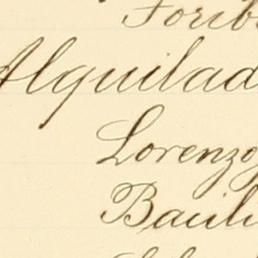 Torib
Alquilad
Lorenzo
Bauli